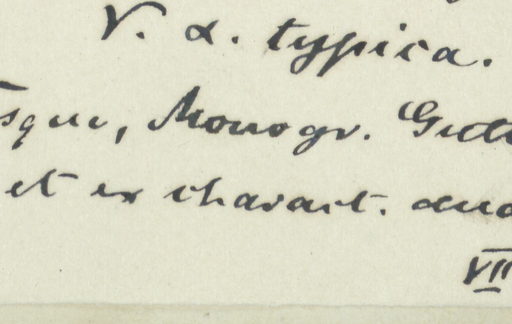 V. α. typica.
sque, Monogr. Gutt
et ex charact. auc
VII